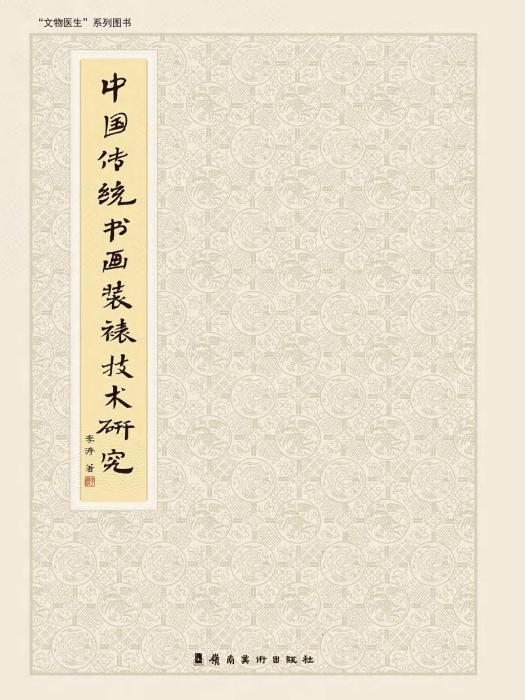 “文物医生”系列图书
中国传统书画装裱技术研究
李涛 著
岭南美术出版社